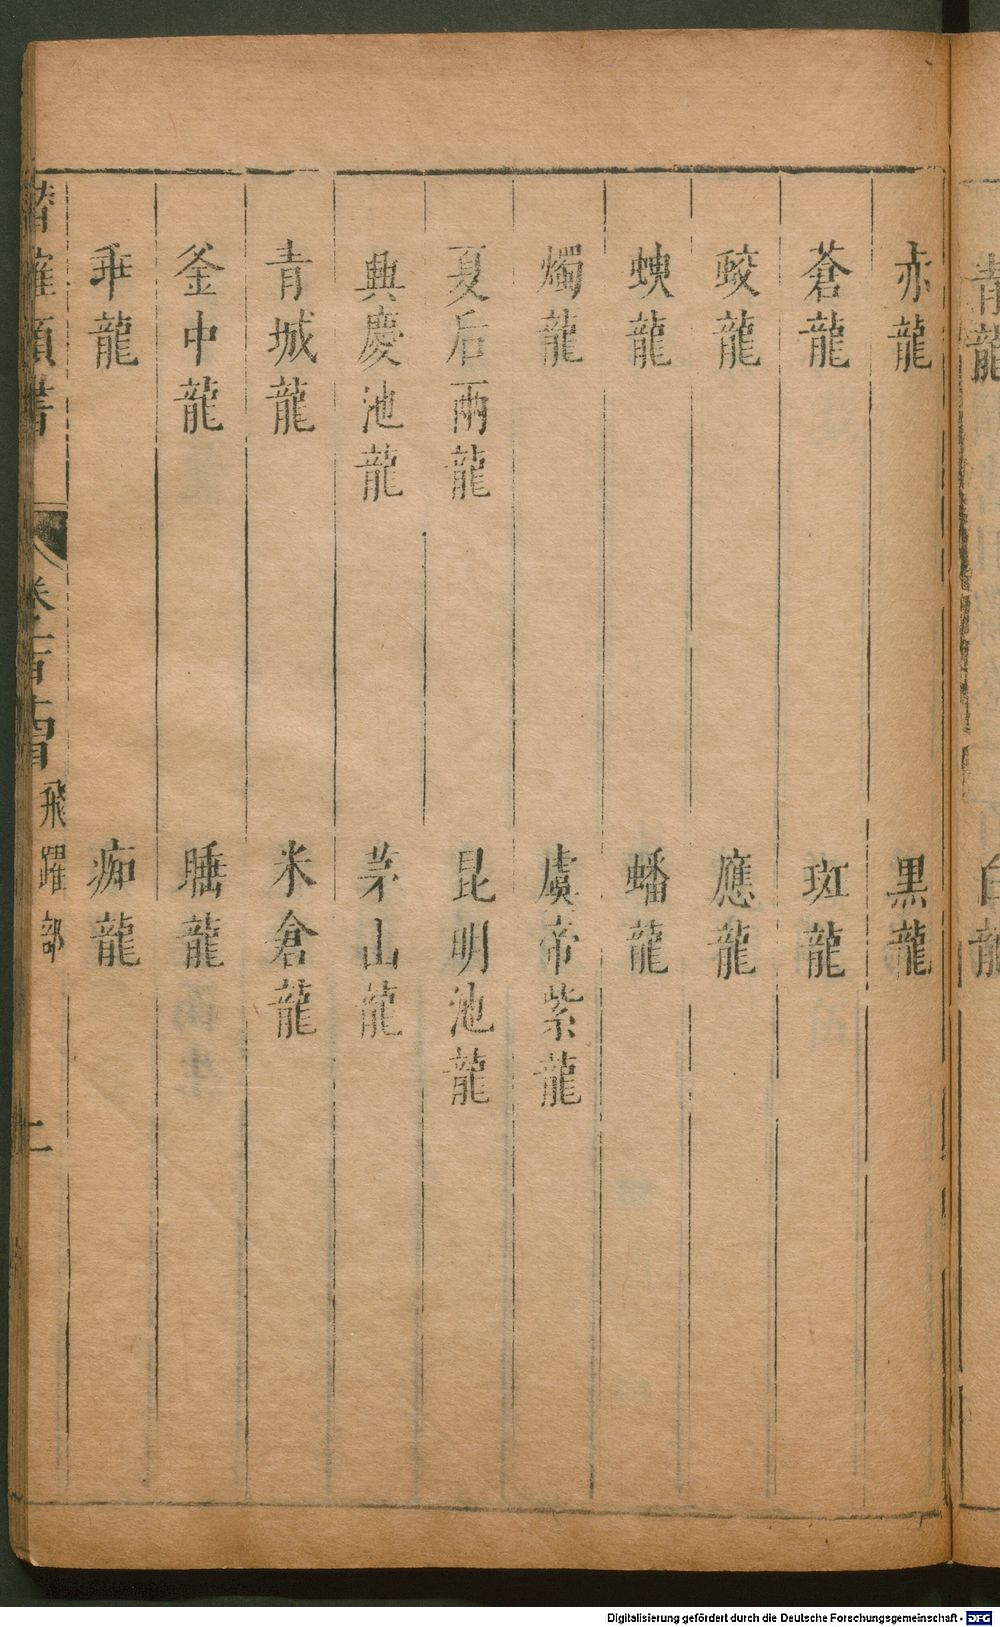 青龍 白龍
赤龍 黒龍
蒼龍 斑龍
蛟龍 應龍
蜧龍 蟠龍
燭龍 虞帝紫龍
夏后兩龍 昆明池龍
興慶池龍 茅山龍
青城龍 米倉龍
釜中龍 睡龍
乖龍 痴龍
潛確類書 卷 飛躍部 二
Digitalisierung gefördert durch die Deutsche Forschungsgemeinschaft - DFG